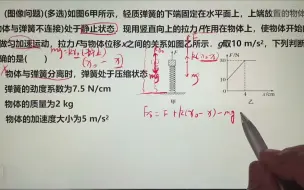 (图像问题)(多选)如图6甲所示,轻质弹簧的下端固定在水平面上,上端放置的物体
与弹簧不连接)处于静止状态。现用竖直向上的拉力F作用在物体上,使物体开始向
做匀加速运动,拉力F与物体位移x之间的关系如图乙所示。g取10 m/s²,下列判断
确的是( )
物体与弹簧分离时,弹簧处于压缩状态
弹簧的劲度系数为7.5 N/cm
物体的质量为2 kg
物体的加速度大小为5 m/s²
mg
k(x₀-x)
F/N
甲
乙
F合 = F + k(x₀-x) - mg